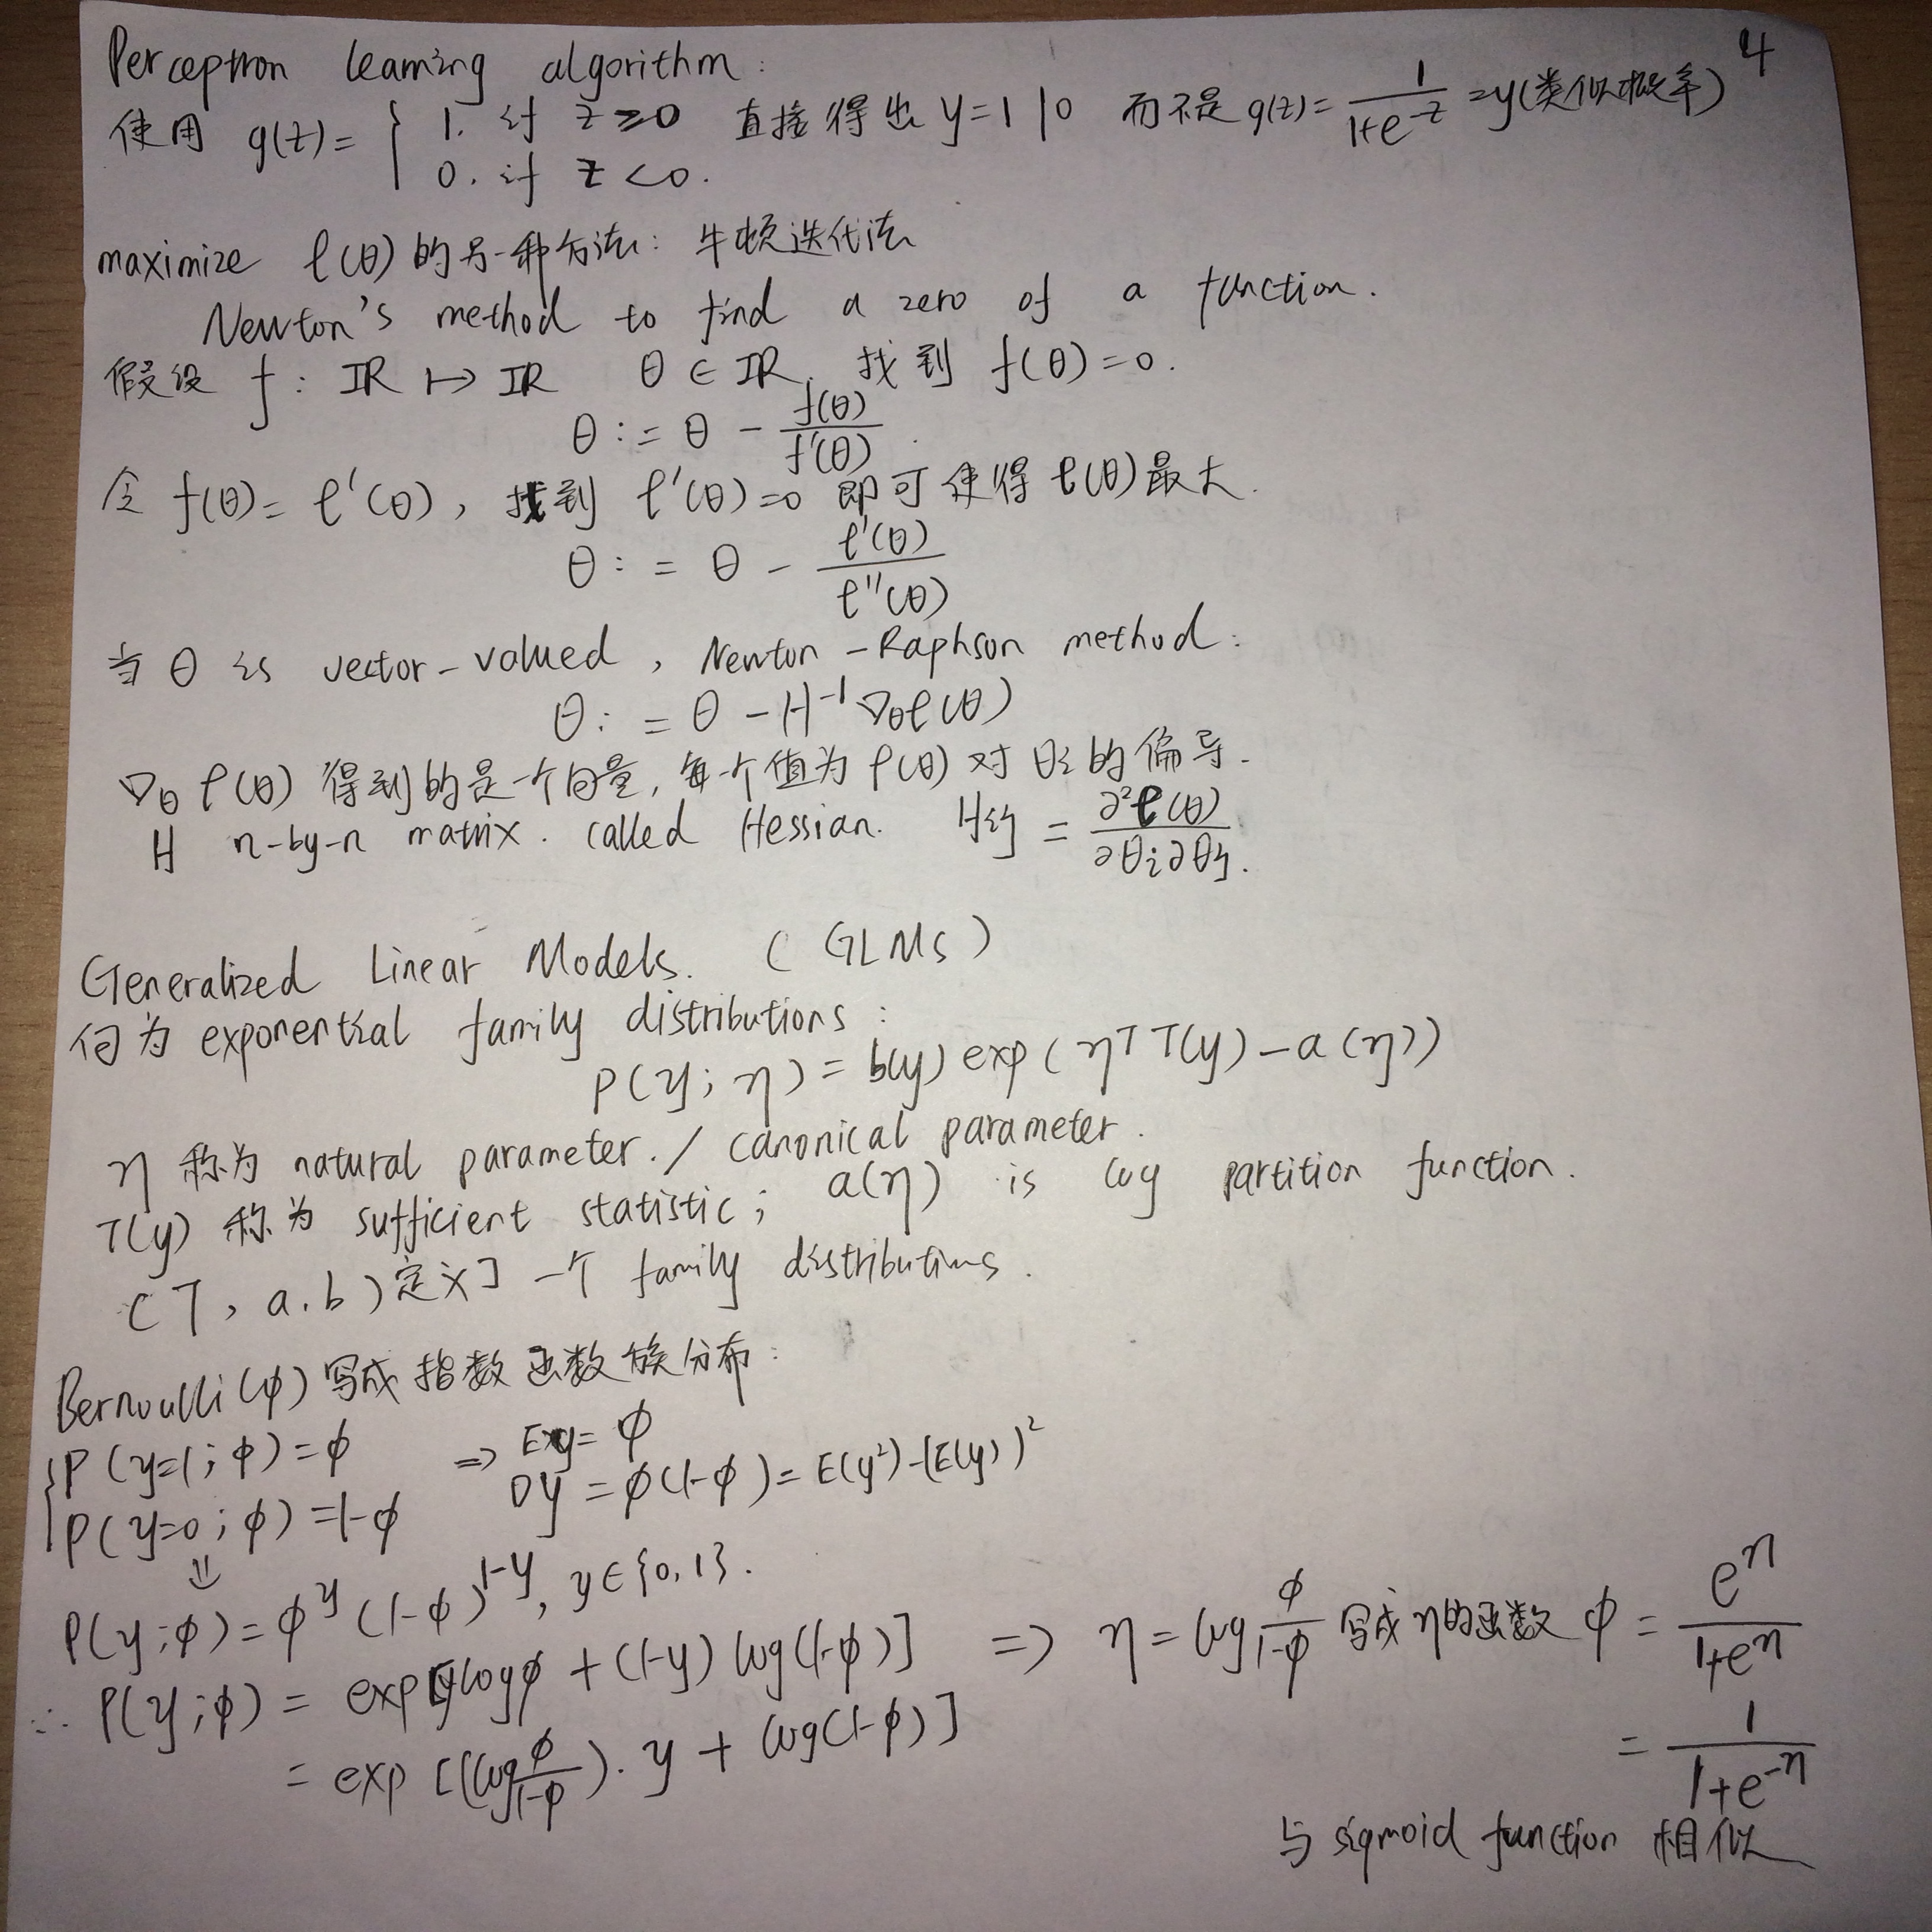 4
Perceptron learning algorithm:
使用 g(z) = { 1. if z ≥ 0 直接得出 y=1|0 而不是 g(z) = 1/(1+e^-z) = y(类似概率)
0. if z < 0.
maximize ℓ(θ) 的另一种方法: 牛顿迭代法
Newton's method to find a zero of a function.
假设 f: ℝ ↦ ℝ θ ∈ ℝ. 找到 f(θ)=0.
θ := θ - f(θ)/f'(θ).
令 f(θ) = ℓ'(θ), 找到 ℓ'(θ)=0 即可使得 ℓ(θ) 最大.
θ := θ - ℓ'(θ)/ℓ''(θ)
当 θ is vector-valued, Newton-Raphson method:
θ := θ - H⁻¹ ∇θ ℓ(θ)
∇θ ℓ(θ) 得到的是一个向量, 每个值为 ℓ(θ) 对 θi 的偏导.
H n-by-n matrix. called Hessian. Hij = ∂²ℓ(θ)/∂θi∂θj.
Generalized Linear Models. (GLMs)
何为 exponential family distributions:
P(y; η) = b(y) exp(η^T T(y) - a(η))
η 称为 natural parameter. / canonical parameter.
T(y) 称为 sufficient statistic; a(η) is log partition function.
(T, a, b) 定义了一个 family distributions.
Bernoulli(φ) 写成指数函数族分布:
{ P(y=1; φ) = φ ⇒ Ey = φ
P(y=0; φ) = 1-φ Dy = φ(1-φ) = E(y²) - [E(y)]²
⇓
P(y;φ) = φ^y (1-φ)^(1-y), y ∈ {0,1}.
∴ P(y;φ) = exp[ylogφ + (1-y) log(1-φ)] ⇒ η = log φ/(1-φ) 写成 η 的函数 φ = e^η/(1+e^η)
= exp[(log φ/(1-φ)) · y + log(1-φ)] = 1/(1+e^-η)
与 sigmoid function 相似